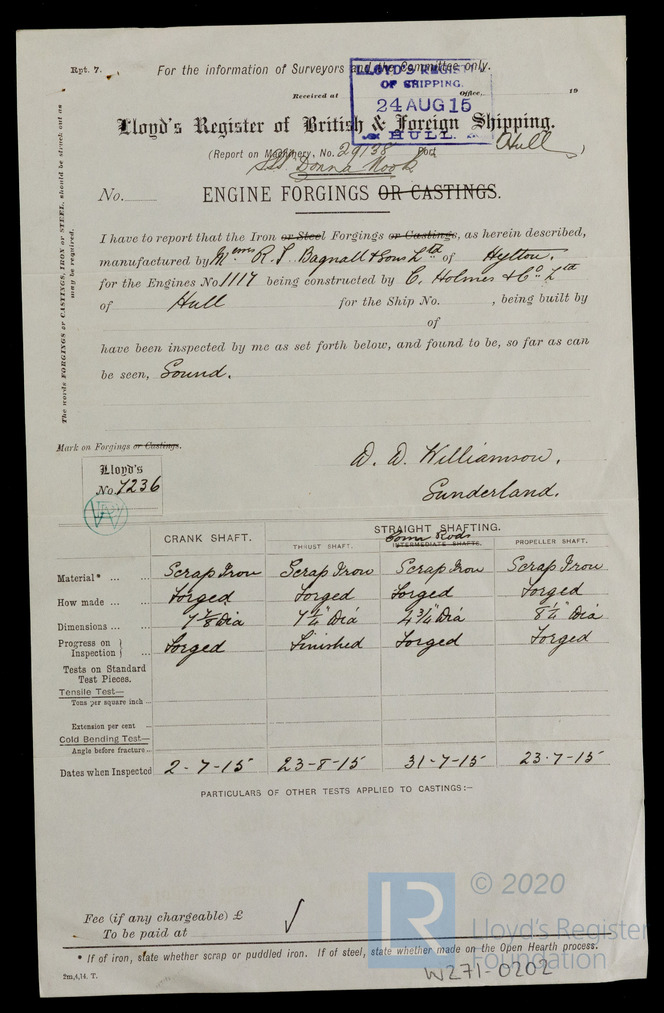 Rpt. 7.
For the information of Surveyors and the Committee only.
LLOYD'S REGISTER
OF SHIPPING.
24 AUG 15
HULL.
Received at Office, 19
Lloyd's Register of British & Foreign Shipping.
(Report on Machinery, No. 29138 Port Hull)
SS "Donna Nook"
No.
ENGINE FORGINGS OR CASTINGS.
The words FORGINGS or CASTINGS, IRON or STEEL, should be struck out as
may be required.
I have to report that the Iron or Steel Forgings or Castings, as herein described,
manufactured by Messrs R. S. Bagnall & Sons Ltd of Hylton.
for the Engines No 1117 being constructed by C. Holmes & Co. Ltd
of Hull for the Ship No. , being built by
of
have been inspected by me as set forth below, and found to be, so far as can
be seen, Sound.
Mark on Forgings or Castings.
Lloyd's
No 7236
D. D. Williamson,
Sunderland.
CRANK SHAFT.
STRAIGHT SHAFTING.
THRUST SHAFT. Conn Rods INTERMEDIATE SHAFTS. PROPELLER SHAFT.
Material* ... ... Scrap Iron Scrap Iron Scrap Iron Scrap Iron
How made ... ... Forged Forged Forged Forged
Dimensions ... ... 7 7/8 Dia 7 1/4" Dia 4 3/4" Dia 8 1/4" Dia
Progress on Inspection } ... Forged Finished Forged Forged
Tests on Standard
Test Pieces.
Tensile Test—
Tons per square inch ...
Extension per cent ...
Cold Bending Test—
Angle before fracture...
Dates when Inspected 2-7-15 23-8-15 31-7-15 23.7-15
PARTICULARS OF OTHER TESTS APPLIED TO CASTINGS:-
Fee (if any chargeable) £
To be paid at
* If of iron, state whether scrap or puddled iron. If of steel, state whether made on the Open Hearth process.
2m,4,14. T.
W271-0202
LR
© 2020
Lloyd's Register
Foundation